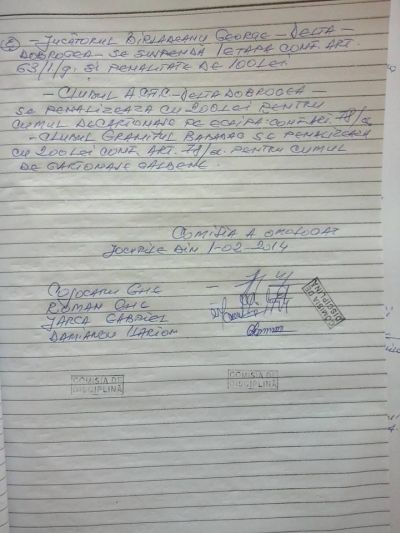 ② - JUCĂTORUL BÎRLĂDEANU GEORGE - DELTA -
DOBROGEA - SE SUSPENDĂ 1 ETAPĂ CONF. ART.
63/1/g. ȘI PENALITATE DE 100 LEI
- CLUBUL ACFC - DELTA DOBROGEA -
SE PENALIZEAZĂ CU 200 LEI PENTRU
CUMUL DE CARTONAȘE PE ECHIPĂ CONF. ART. 78/a
- CLUBUL GRANITUL BABADAG SE PENALIZEAZĂ
CU 200 LEI CONF. ART. 78/a. PENTRU CUMUL
DE CARTONAȘE GALBENE.
COMISIA A OMOLOGAT
JOCURILE DIN 1-02-2014
COJOCARU GHE -
ROMAN GHE
IARCA GABRIEL
DAMIANOV ILARION
COMISIA DE
DISCIPLINĂ
COMISIA DE
DISCIPLINĂ
COMISIA DE
DISCIPLINĂ